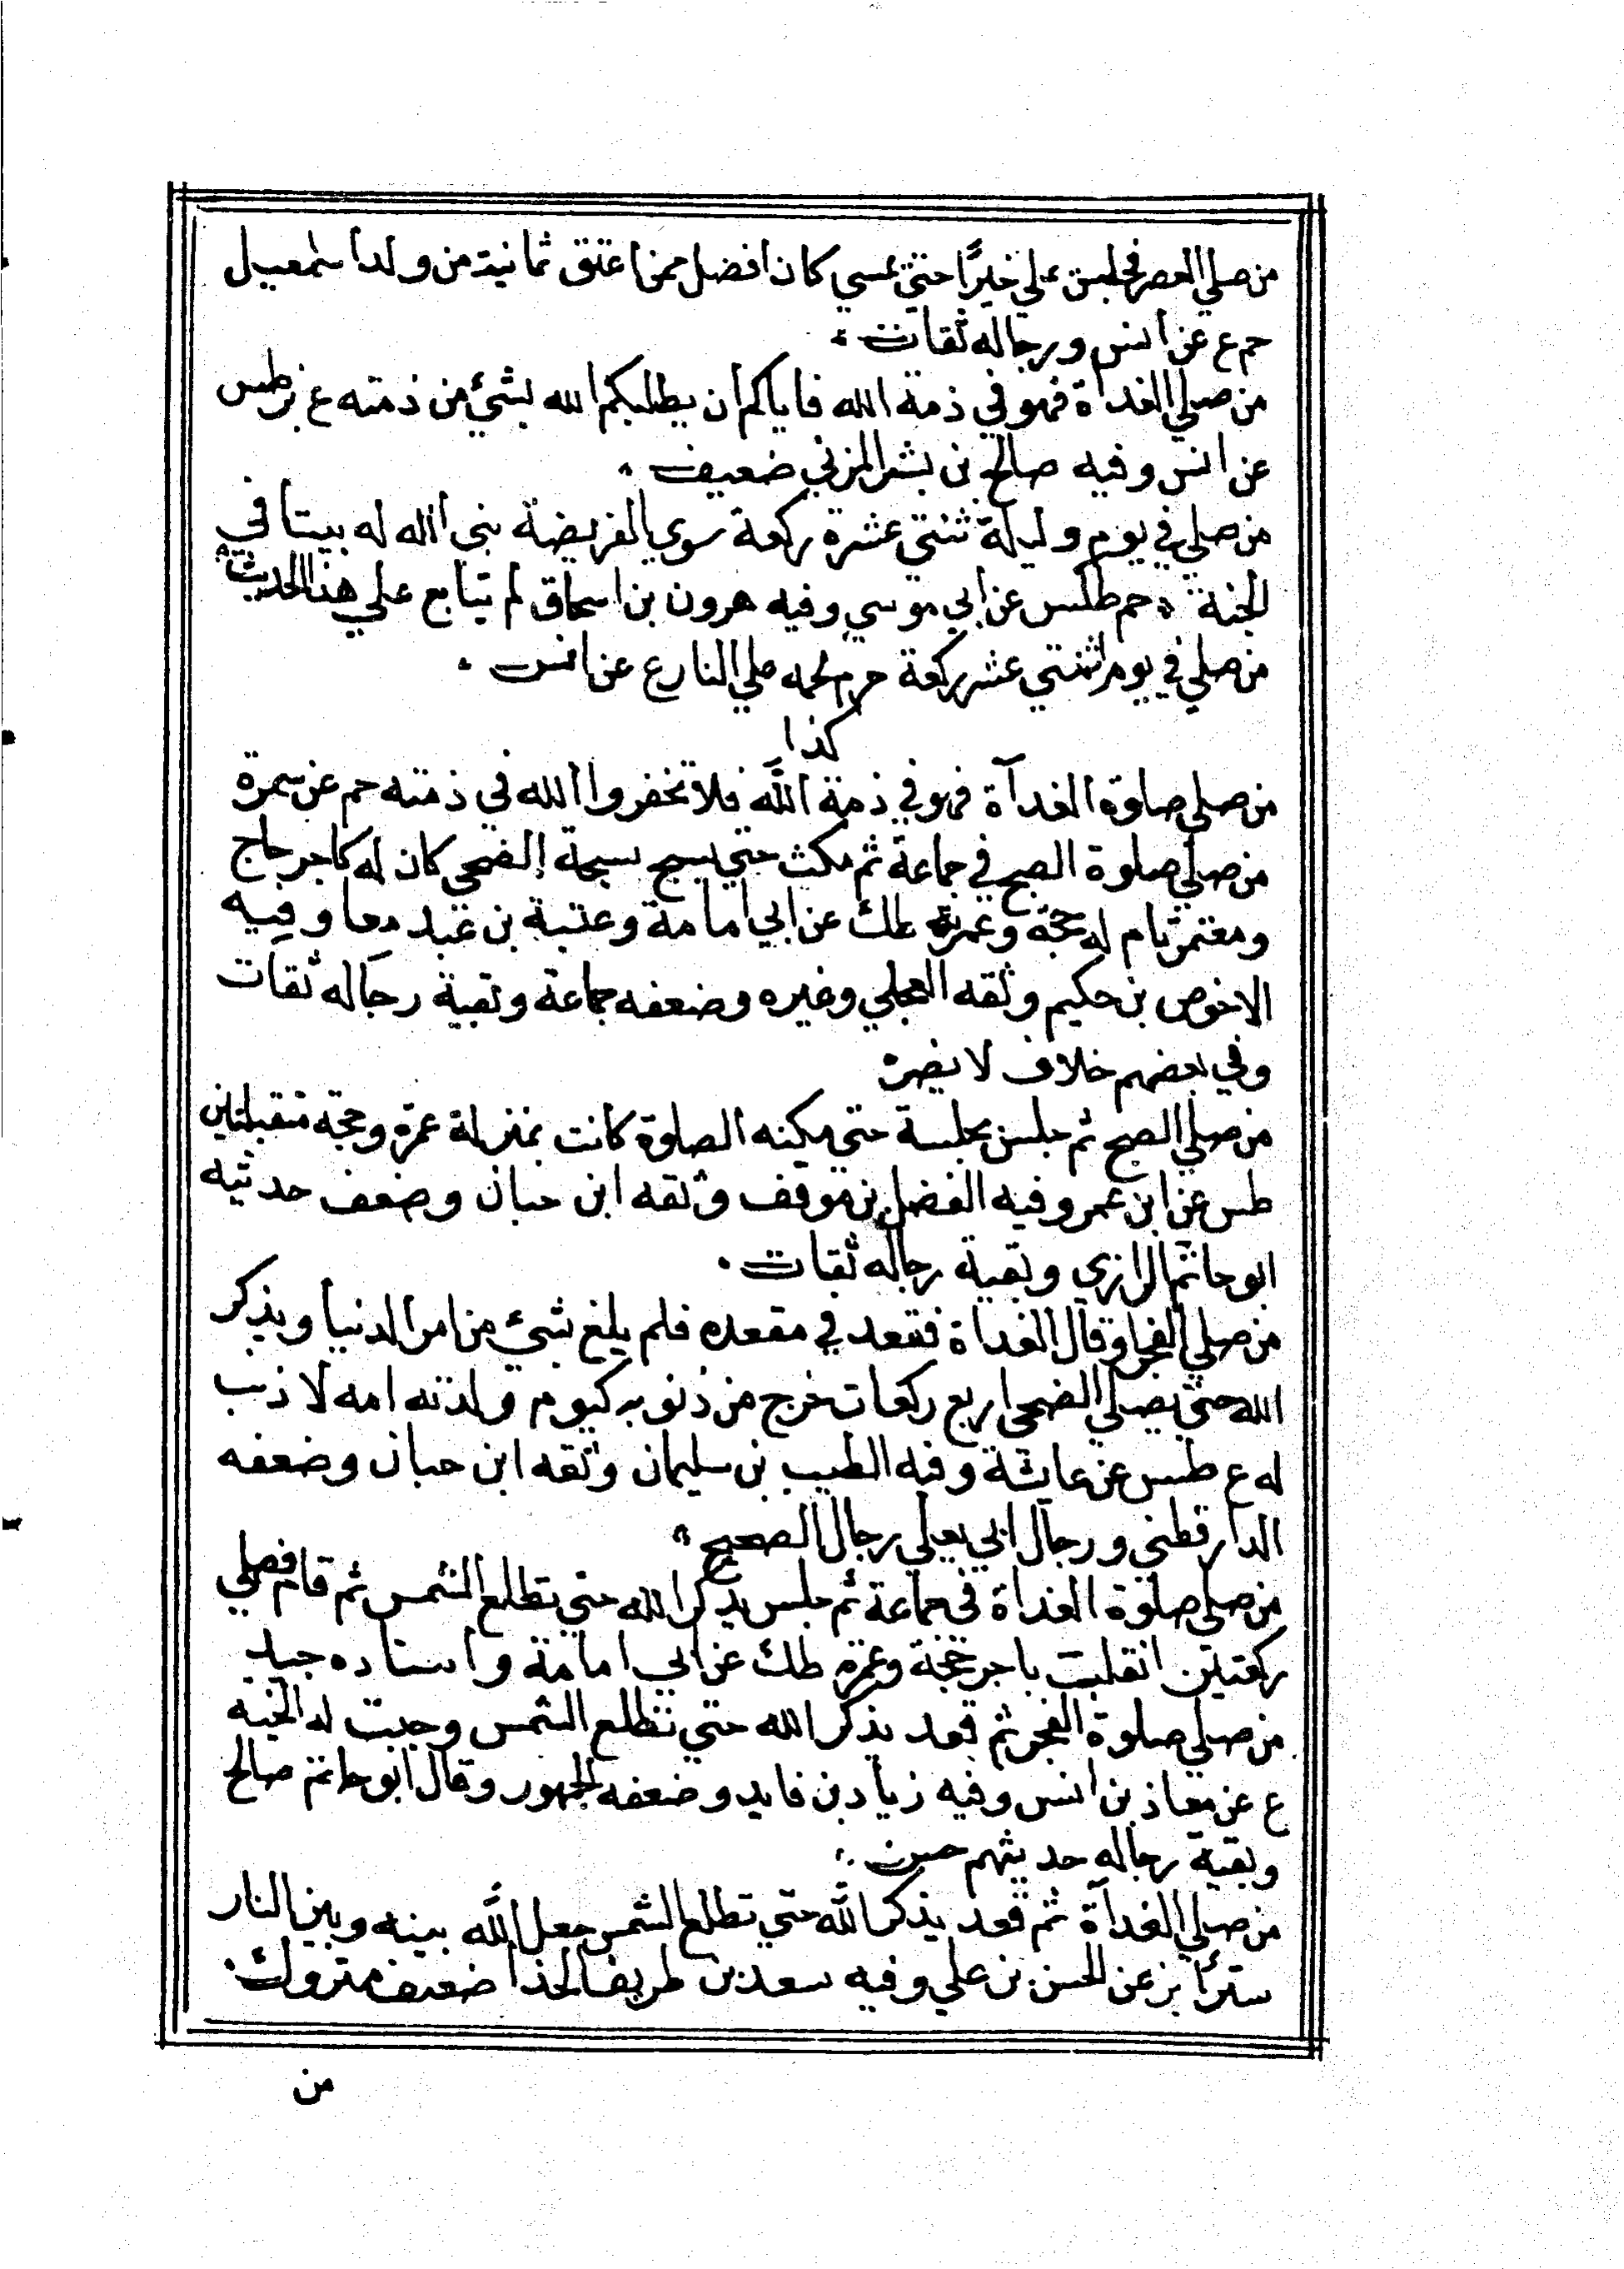 من صلي العصر فجلس يملي خيرًا حتي يمسي كان افضل ممن اعتق ثمانية من ولد اسمعيل
حم ع عن انس ورجاله ثقات
من صلي الغداة فهو في ذمة الله فاياكم ان يطلبكم الله بشيء من ذمته ع بز طس
عن انس وفيه صالح بن بشر المزني ضعيف
من صلي في يوم وليلة ثنتي عشرة ركعة سوي الفريضة بنى الله له بيتا في
الجنة حم طكس عن ابي موسي وفيه هرون بن اسحاق لم يتابع علي هذا الحديث
من صلي في يوم اثنتي عشر ركعة حرم لحمه علي النار ع عن انس
كذا
من صلي صلوة الغدآة فهو في ذمة اللّه فلا تخفروا الله في ذمته حم عن سمرة
من صلي صلوة الصبح في جماعة ثم مكث حتي يسبح سبحة الضحي كان له كاجر حاج
ومعتمر تام له حجة وعمرة طك عن ابي امامة وعتبة بن عبد معا وفيه
الاخوص بن حكيم وثقه العجلي وغيره وضعفه جماعة وبقية رجاله ثقات
وفي بعضهم خلاف لا يضر
من صلي الصبح ثم جلس مجلسة حتي يمكنه الصلوة كانت بمنزلة عمرة وحجة متقبلتين
طس عن ابن عمر وفيه الفضل بن موفق وثقه ابن حبان وضعف حديثه
ابو حاتم الرازي وبقية رجاله ثقات
من صلي الفجر او قال الغداة فقعد في مقعده فلم يلغ بشيء من امر الدنيا ويذكر
الله حتي يصلي الضحي اربع ركعات خرج من ذنوبه كيوم ولدته امه لا ذنب
له ع طس عن عايشة وفيه الطيب بن سليمان وثقه ابن حبان وضعفه
الدارقطني ورجال ابي يعلي رجال الصحيح
من صلي صلوة الغداة في جماعة ثم جلس يذكر الله حتي تطلع الشمس ثم قام فصلي
ركعتين انقلبت باجر حجة وعمرة طك عن ابي امامة واسناده جيد
من صلي صلوة الفجر ثم قعد يذكر الله حتي تطلع الشمس وجبت له الجنة
ع عن معاذ بن انس وفيه زياد بن فايد وضعفه الجمهور وقال ابو حاتم صالح
وبقية رجاله حديثهم حسن
من صلي الغدآة ثم قعد يذكر اللّه حتي تطلع الشمس جعل اللّه بينه وبين النار
سترًا بز عن الحسن بن علي وفيه سعد بن طريف الحذا ضعيف متروك
من